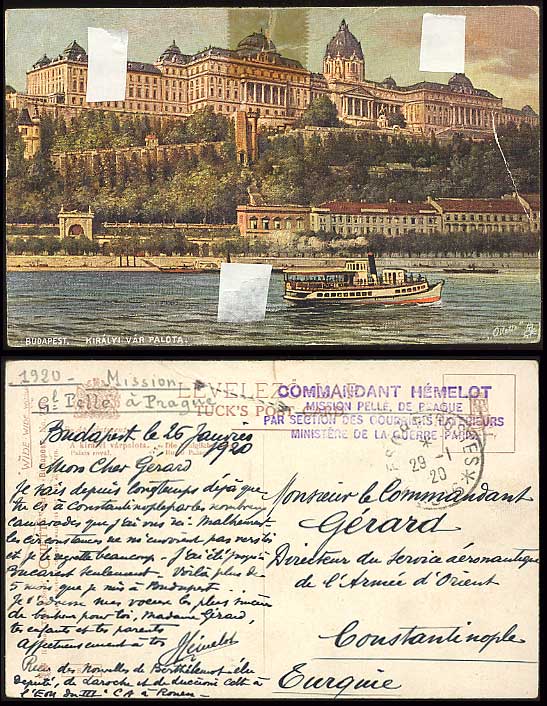 BUDAPEST. KIRÁLYI VÁR PALOTA.
1920 - Mission
Gl Pellé à Prague
LEVELEZŐ
TUCK'S POST
COMMANDANT HÉMELOT
MISSION PELLÉ, DE PRAGUE
PAR SECTION DES COURRIERS
MINISTÈRE DE LA GUERRE - PARIS
29 - 1
20
WIDE WIDE
A királyi várpalota.
Palais royal.
Budapest le 26 Janvier
1920
Mon Cher Gérard
Je sais depuis longtemps déjà que
tu es à Constantinople par les nombreux
camarades que j'ai vus ici. Malheureusement
les circonstances ne me
et je le regrette beaucoup - J'ai été jusqu'à
Bucarest seulement - Voilà plus de
5 mois que je suis à Budapest.
Je t'adresse mes voeux les plus sincères
de bonheur pour toi, Madame Gérard,
tes enfants et tes parents
Affectueusement à toi
Hémelot
Reçu des nouvelles de Berthélemot élu
Député, de Laroche et de
l'EM du IIIe CA à Rouen -
Monsieur le Commandant
Gérard
Directeur du Service aéronautique
de l'Armée d'Orient
Constantinople
Turquie